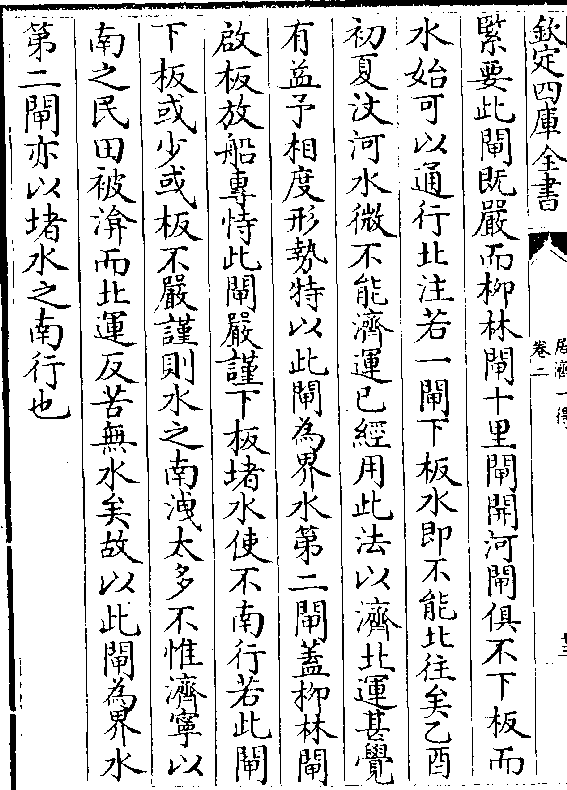 欽定四庫全書
居濟一得
卷二
緊要此閘既嚴而柳林閘十里閘開河閘俱不下板而
水始可以通行北注若一閘下板水即不能北往矣乙酉
初夏汶河水微不能濟運已經用此法以濟北運甚覺
有益予相度形勢特以此閘為界水第二閘蓋柳林閘
啟板放船專恃此閘嚴謹下板堵水使不南行若此閘
下板或少或板不嚴謹則水之南洩太多不惟濟寧以
南之民田被渰而北運反苦無水矣故以此閘為界水
第二閘亦以堵水之南行也